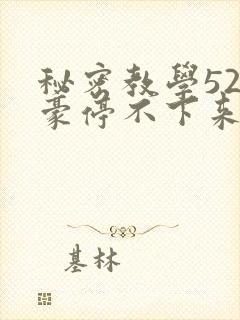 秘密教學52
豪停不下来
基林